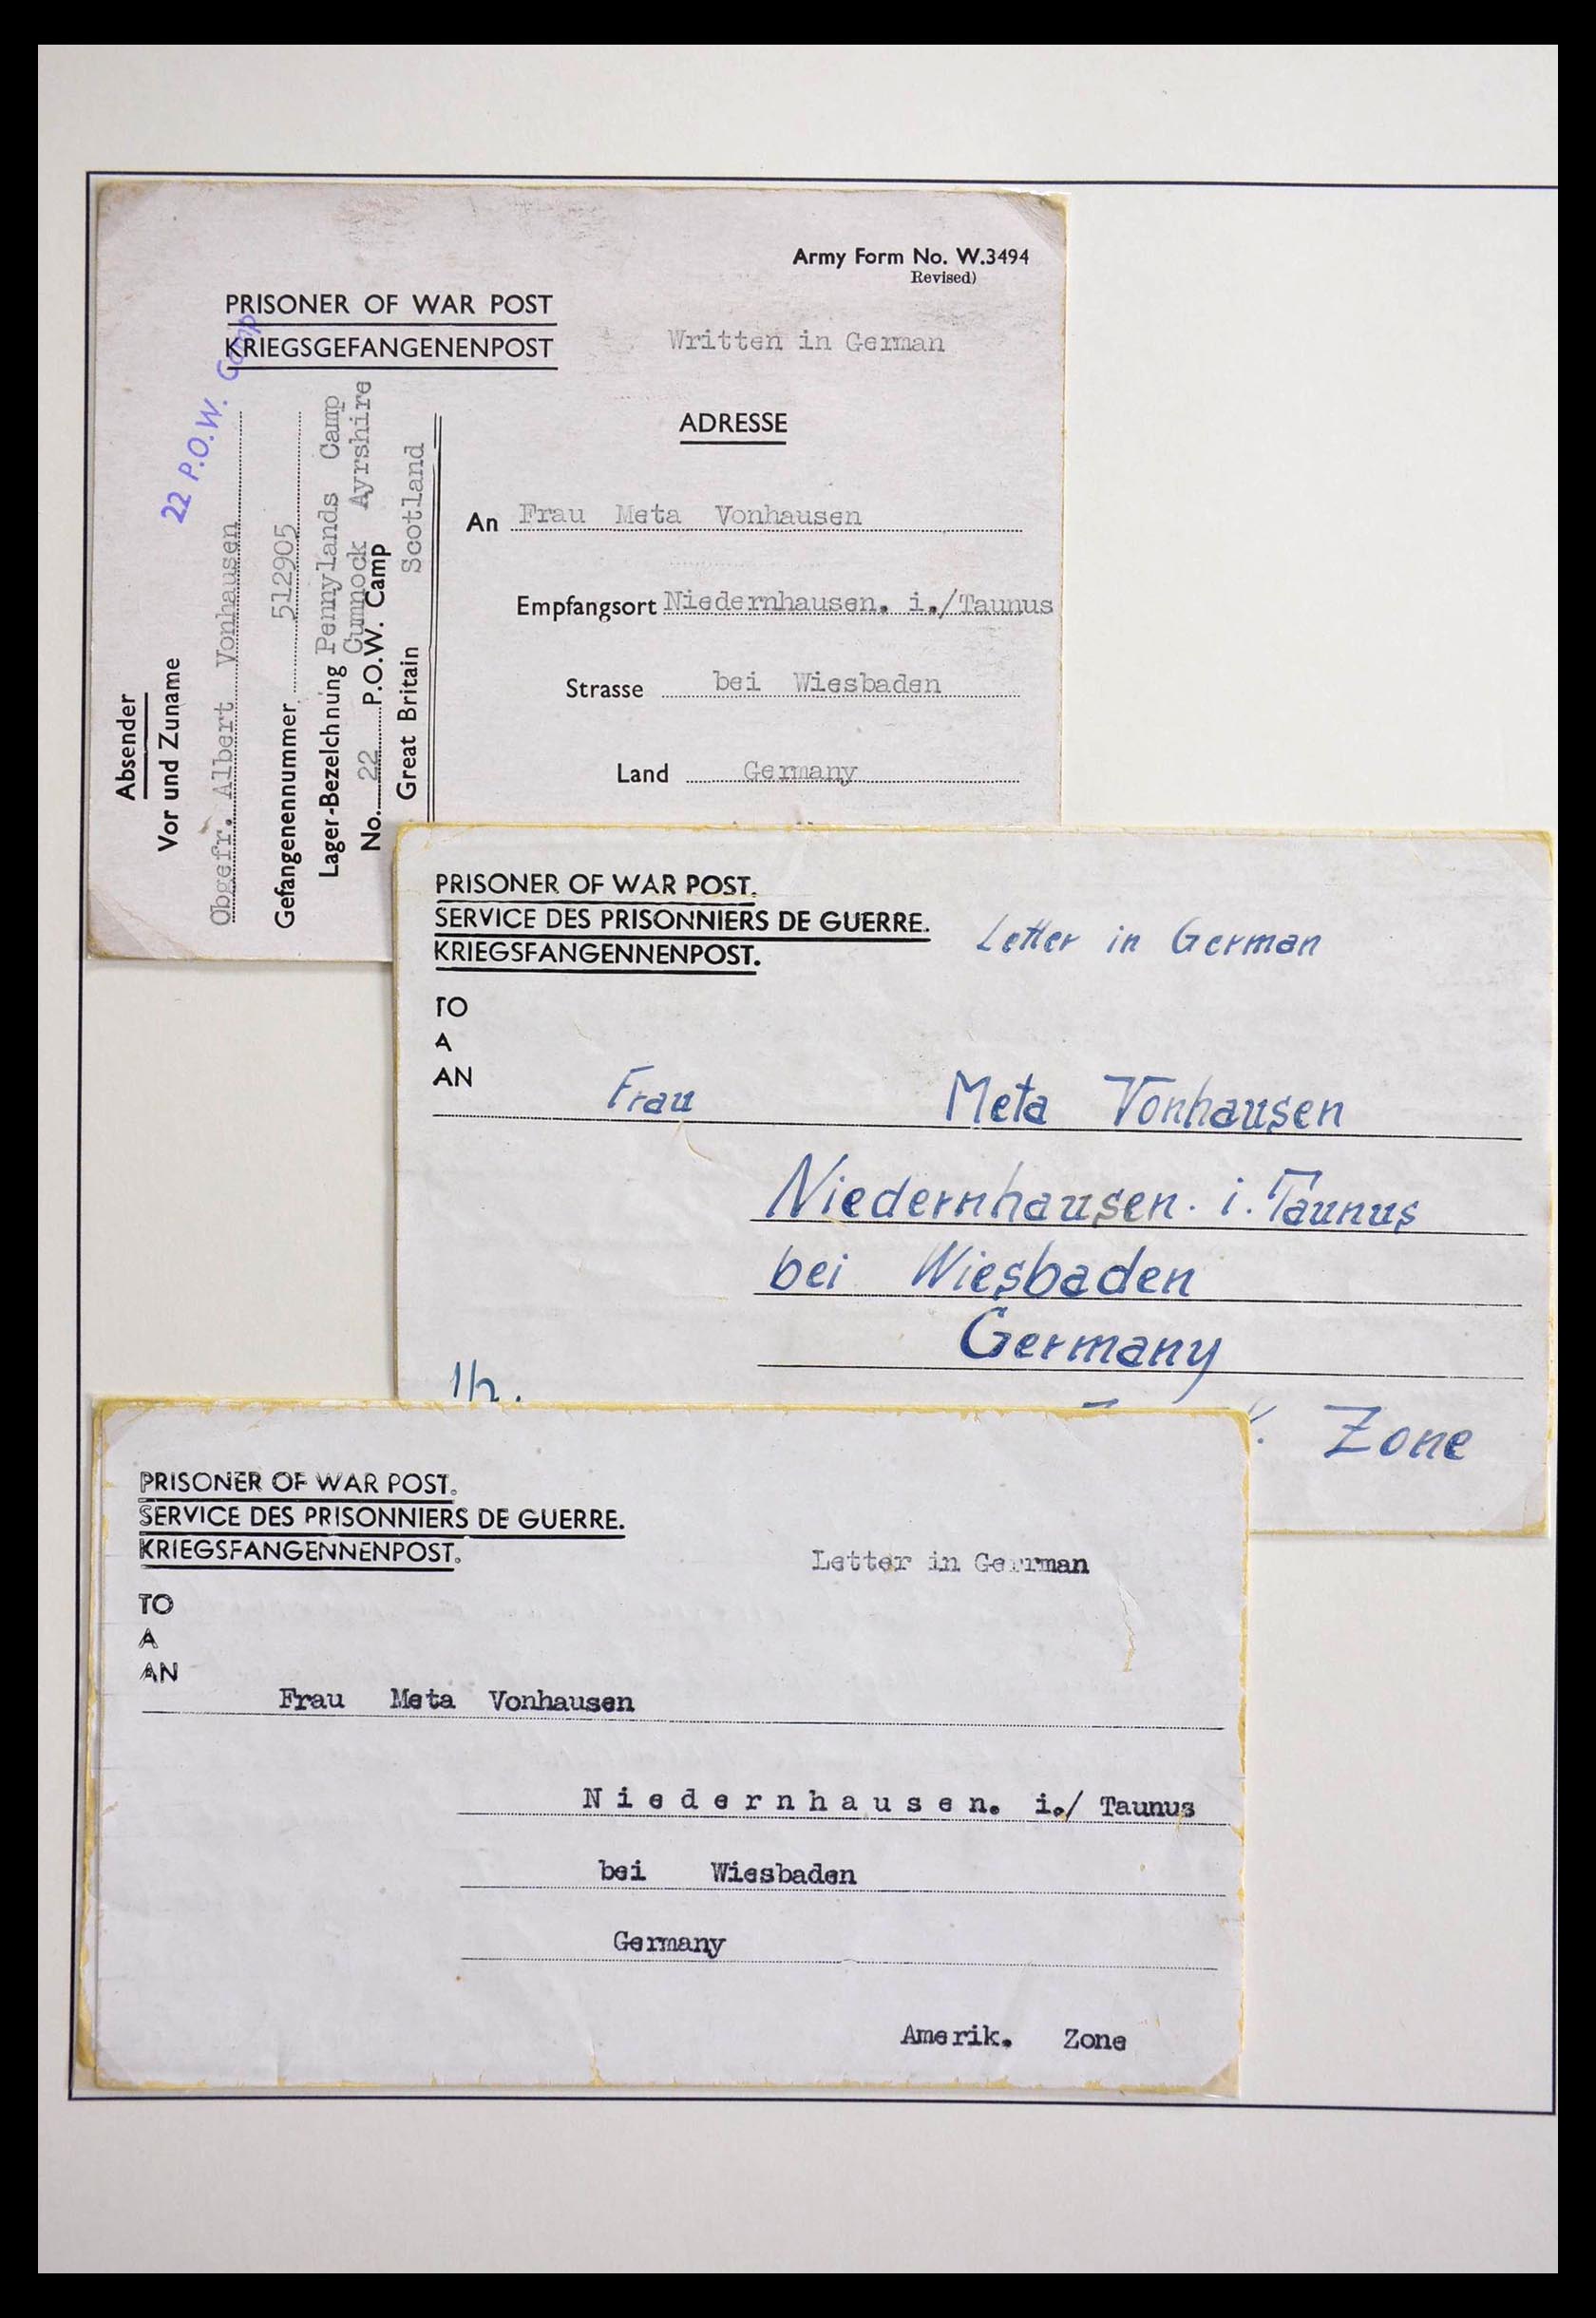 Army Form No. W.3494
Revised)
PRISONER OF WAR POST
KRIEGSGEFANGENENPOST
Written in German
22 P.O.W. Camp
ADRESSE
An Frau Meta Vonhausen
Empfangsort Niedernhausen. i./Taunus
Strasse bei Wiesbaden
Land Germany
Absender
Vor und Zuname
Obgefr. Albert Vonhausen
Gefangenennummer 512905
Lager-Bezeichnung Pennylands Camp
Cumnock Ayrshire
No. 22 P.O.W. Camp
Great Britain Scotland
PRISONER OF WAR POST.
SERVICE DES PRISONNIERS DE GUERRE.
KRIEGSFANGENNENPOST.
Letter in German
TO
A
AN
Frau Meta Vonhausen
Niedernhausen. i. Taunus
bei Wiesbaden
Germany
Zone
PRISONER OF WAR POST.
SERVICE DES PRISONNIERS DE GUERRE.
KRIEGSFANGENNENPOST.
Letter in Gerrman
TO
A
AN
Frau Meta Vonhausen
Niedernhausen. i./ Taunus
bei Wiesbaden
Germany
Amerik. Zone